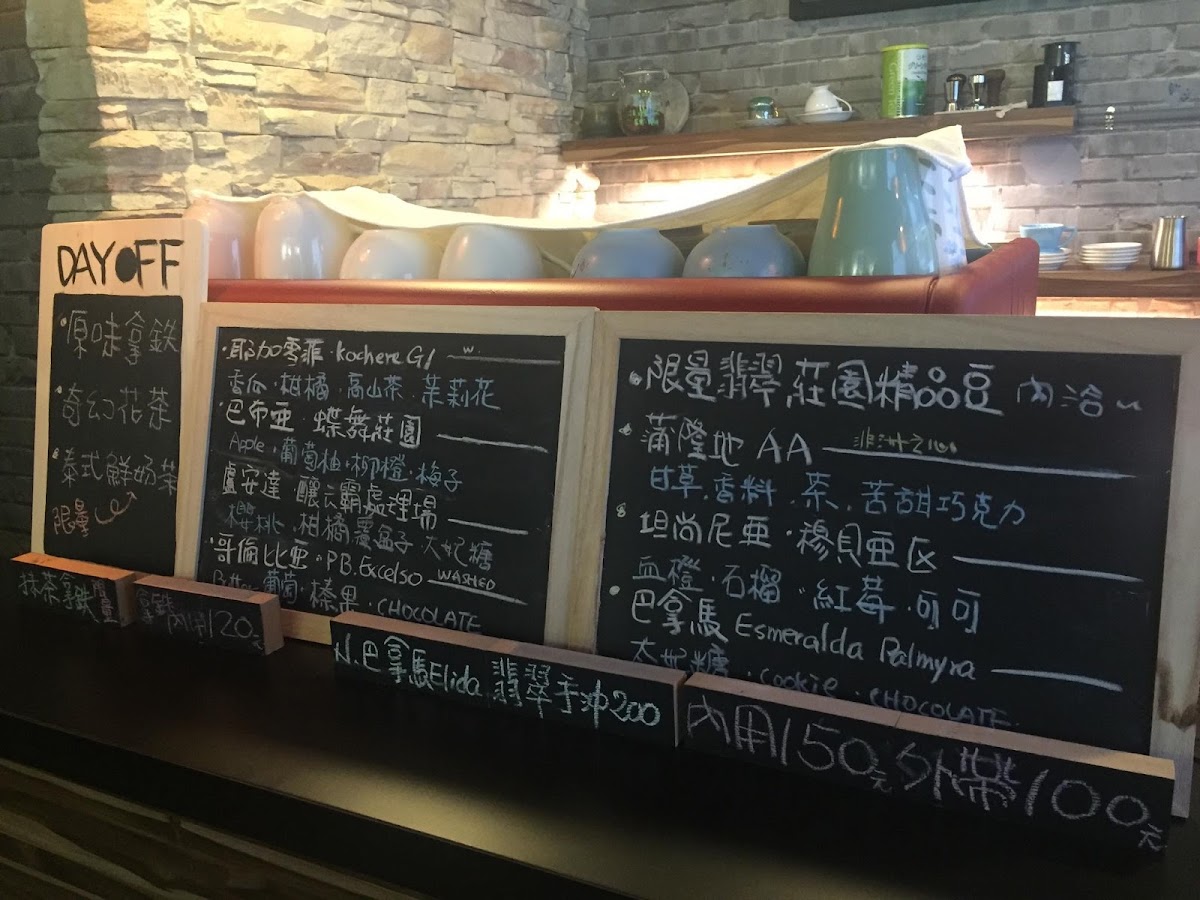 DAY OFF
原味拿鉄
奇幻花茶
泰式鮮奶茶
限量
抹茶拿鉄限量
拿鉄內用120元
·耶加雪菲·Kochere G1 w.
香瓜·柑橘·高山茶·茉莉花
·巴布亜·蝶舞莊園
Apple·葡萄柚·柳橙·梅子
盧安達·釀云霸處理場
櫻桃·柑橘·覆盆子·太妃糖
·哥倫比亜·PB.Excelso WASHED
葡萄·榛果·CHOCOLATE
N.巴拿馬Elida 翡翠手沖200
·限量翡翠莊園精品豆 內洽~
蒲隆地 AA 非洲之心
甘草.香料.茶.苦甜巧克力
坦尚尼亜·穆貝亜区
血橙·石榴·紅莓·可可
巴拿馬 Esmeralda Palmyra
太妃糖·cookie·CHOCOLATE.
內用150元外帶100元